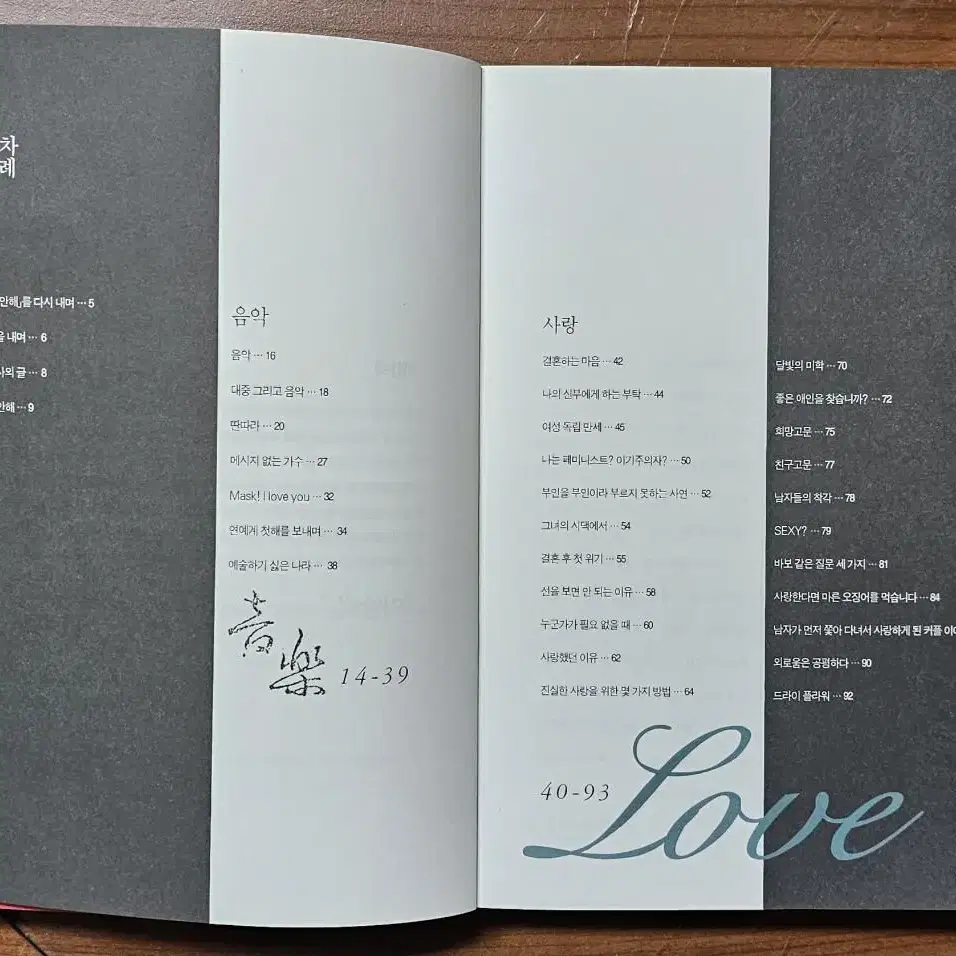 차
례
안해」를 다시 내며 … 5
을 내며 … 6
사의 글 … 8
안해 … 9
음악
음악 … 16
대중 그리고 음악 … 18
딴따라 … 20
메시지 없는 가수 … 27
Mask! I love you … 32
연예계 첫해를 보내며 … 34
예술하기 싫은 나라 … 38
音
樂 14-39
사랑
결혼하는 마음 … 42
나의 신부에게 하는 부탁 … 44
여성 독립 만세 … 45
나는 페미니스트? 이기주의자? … 50
부인을 부인이라 부르지 못하는 사연 … 52
그녀의 시댁에서 … 54
결혼 후 첫 위기 … 55
선을 보면 안 되는 이유 … 58
누군가가 필요 없을 때 … 60
사랑했던 이유 … 62
진실한 사랑을 위한 몇 가지 방법 … 64
달빛의 미학 … 70
좋은 애인을 찾습니까? … 72
희망고문 … 75
친구고문 … 77
남자들의 착각 … 78
SEXY? … 79
바보 같은 질문 세 가지 … 81
사랑한다면 마른 오징어를 먹습니다 … 84
남자가 먼저 쫓아 다녀서 사랑하게 된 커플 이야
외로움은 공평하다 … 90
드라이 플라워 … 92
40-93
Love